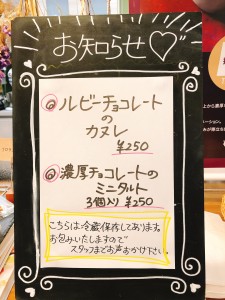 お知らせ♡
◎ルビーチョコレート
の
カヌレ
¥250
◎濃厚チョコレートの
ミニタルト
3個入り ¥250
こちらは冷蔵保存してあります。
お包みいたしますので
スタッフまでお声おかけ下さい。